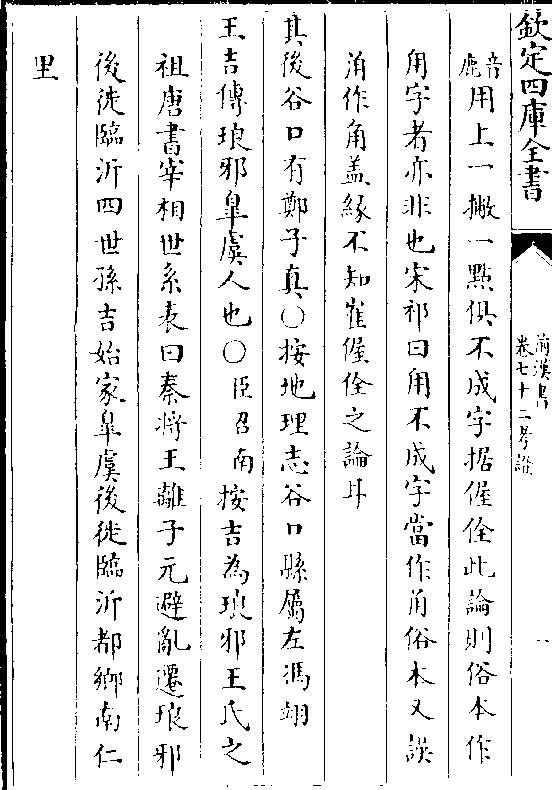 欽定四庫全書
前漢書
卷七十二考證
一
音鹿用上一撇一點俱不成字据偓佺此論則俗本作
甪字者亦非也宋祁曰用不成字當作角俗本又誤
角作角盖緣不知崔偓佺之論耳
其後谷口有鄭子真〇按地理志谷口縣屬左馮翊
王吉傳琅邪臯虞人也〇臣召南按吉為琅邪王氏之
祖唐書宰相世系表曰秦將王離子元避亂遷琅邪
後徙臨沂四世孫吉始家臯虞後徙臨沂都鄉南仁
里